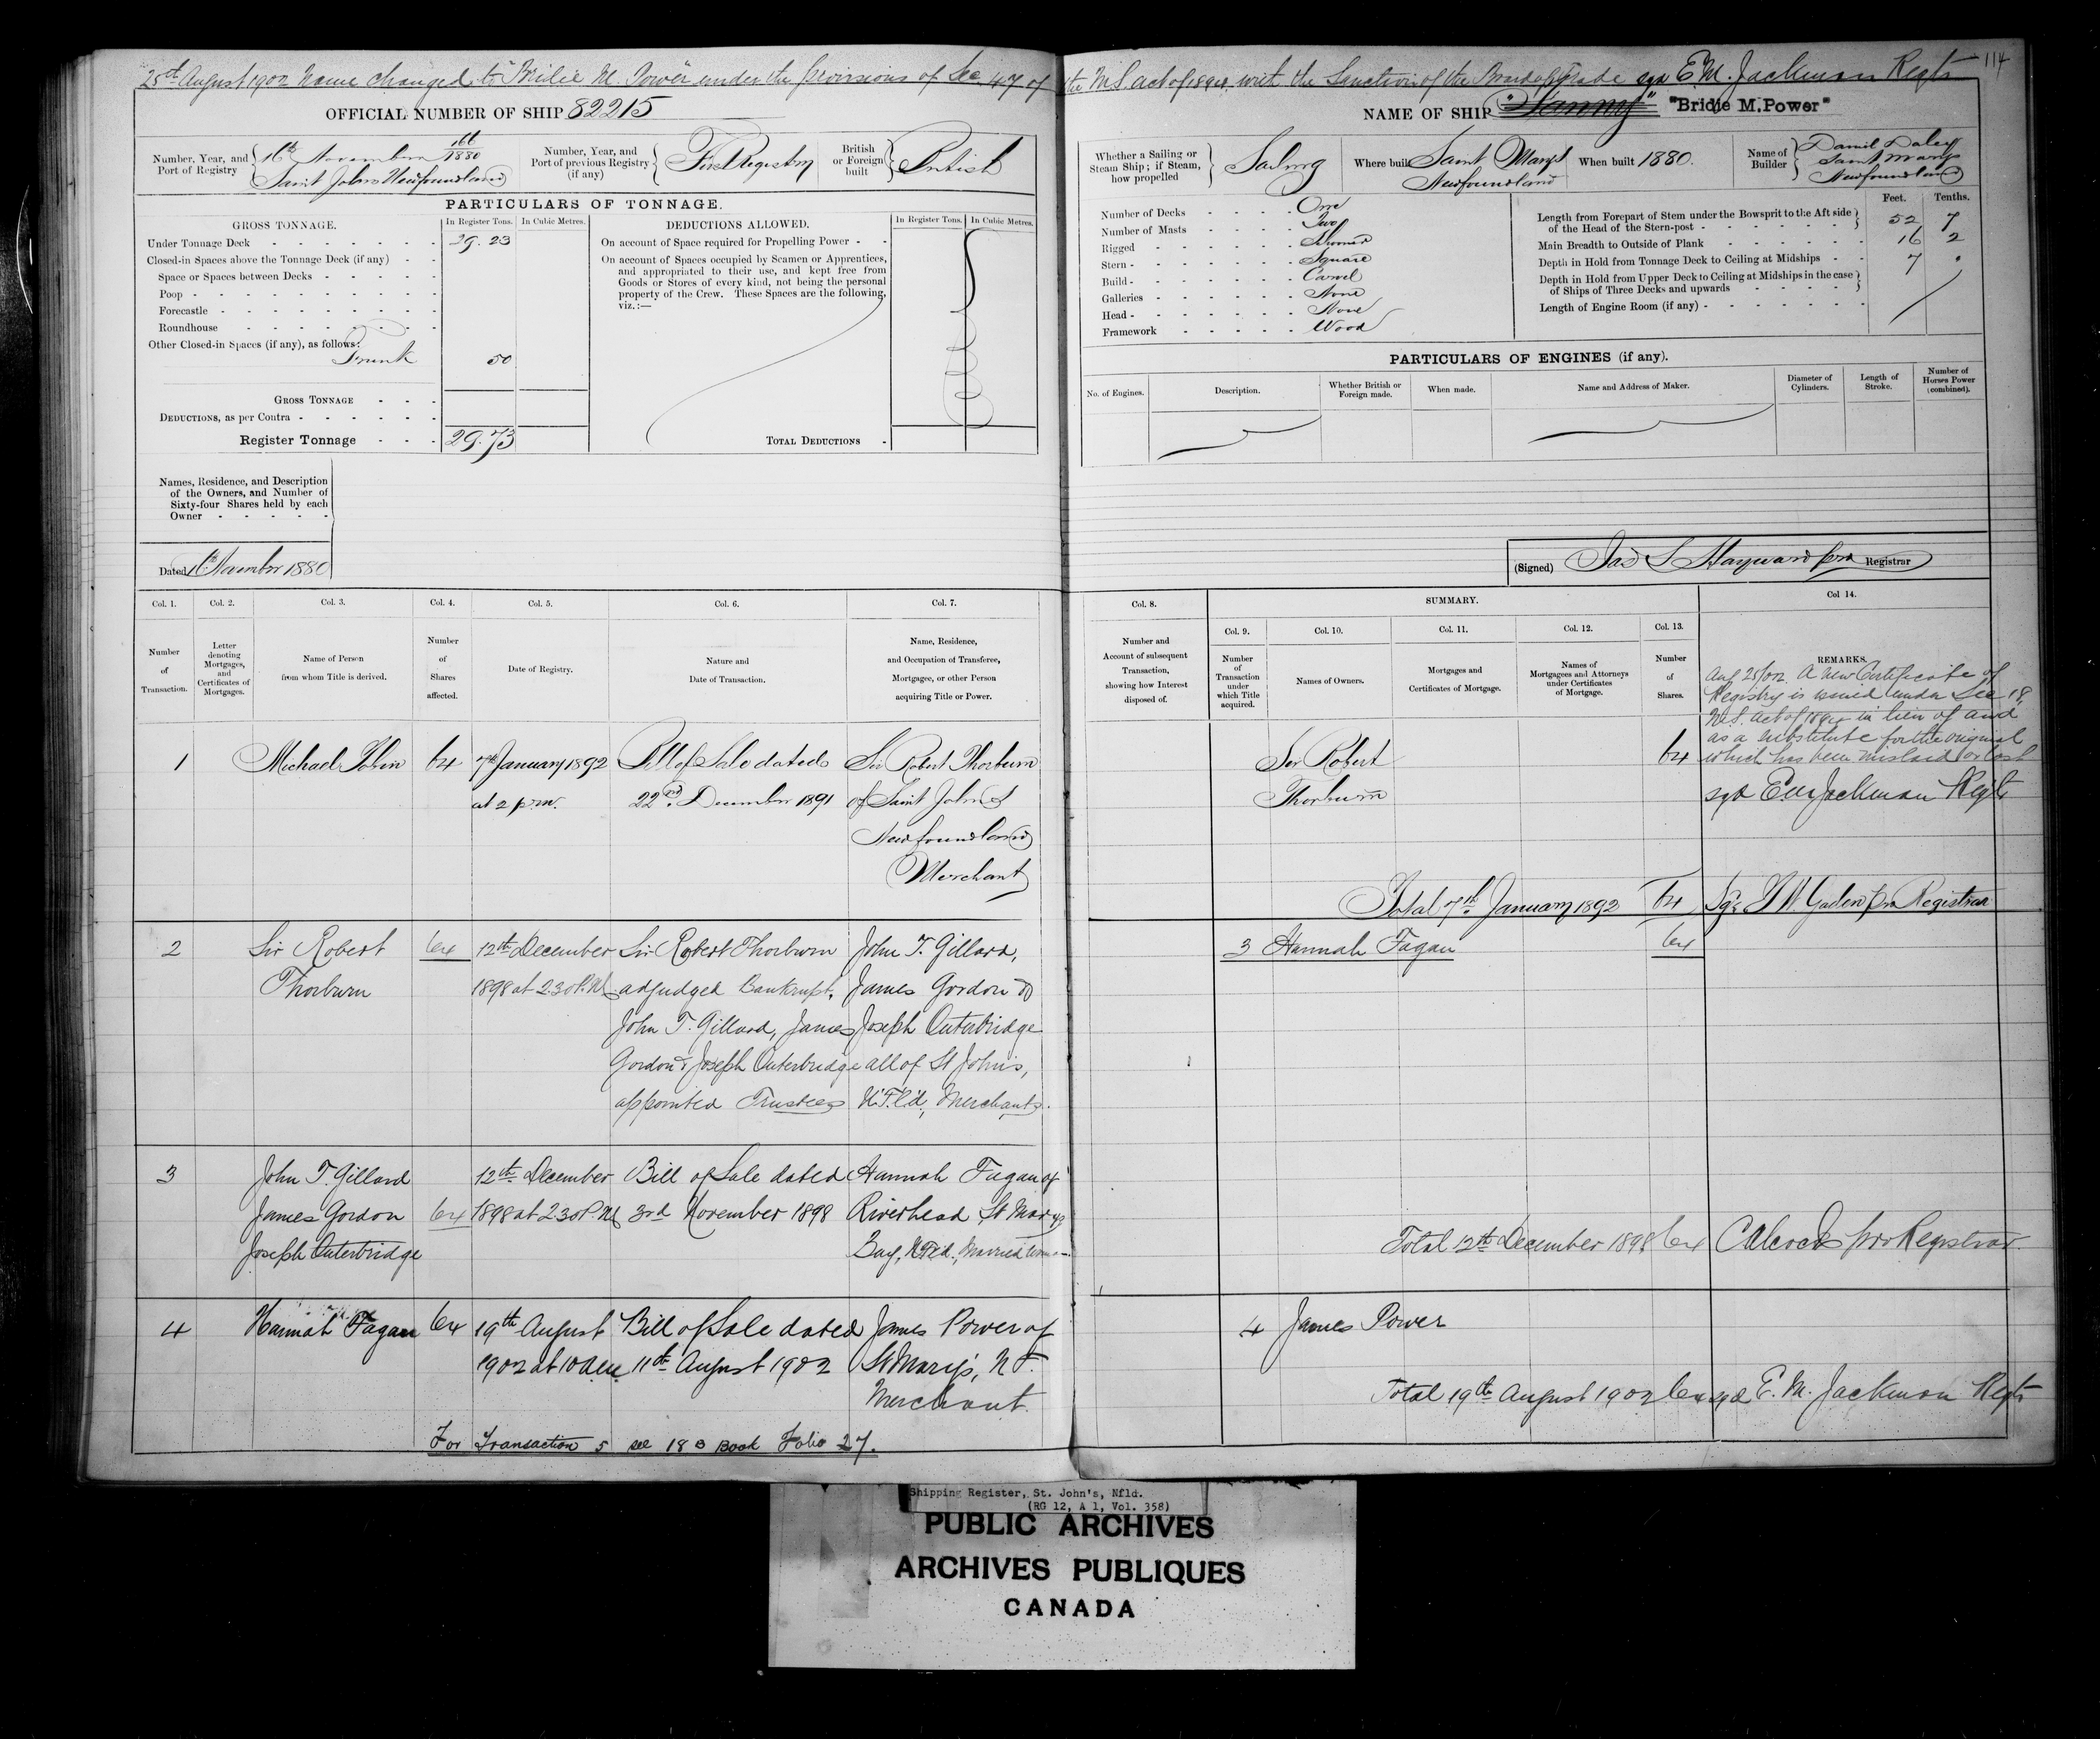 25th August 1902 Name changed to "Bridie M. Power" under the provisions of Sec 47 of the M.S. act of 1894, with the Sanction of the Board of Trade sgd E.M. Jackman Regtr
114
OFFICIAL NUMBER OF SHIP 82215
NAME OF SHIP "Bridie M. Power"
Number, Year, and Port of Registry
16th November 1880
Saint Johns Newfoundland
Number, Year, and Port of previous Registry (if any)
First Registry
British or Foreign built
British
Whether a Sailing or Steam Ship; if Steam, how propelled
Sailing
Where built Saint Mary's Newfoundland
When built 1880.
Name of Builder
Daniel Daley
Saint Marys
Newfoundland
PARTICULARS OF TONNAGE.
GROSS TONNAGE.
In Register Tons.
In Cubic Metres.
DEDUCTIONS ALLOWED.
In Register Tons.
In Cubic Metres.
Under Tonnage Deck 29.23
Closed-in Spaces above the Tonnage Deck (if any)
Space or Spaces between Decks
Poop
Forecastle
Roundhouse
Other Closed-in Spaces (if any), as follows:
Trunk 50
GROSS TONNAGE
DEDUCTIONS, as per Contra
Register Tonnage 29.73
On account of Space required for Propelling Power
On account of Spaces occupied by Seamen or Apprentices,
and appropriated to their use, and kept free from
Goods or Stores of every kind, not being the personal
property of the Crew. These Spaces are the following,
viz.:—
TOTAL DEDUCTIONS
Number of Decks One
Number of Masts Two
Rigged Schooner
Stern Square
Build Carvel
Galleries None
Head None
Framework Wood
Feet. Tenths.
Length from Forepart of Stem under the Bowsprit to the Aft side
of the Head of the Stern-post 52 7
Main Breadth to Outside of Plank 16 2
Depth in Hold from Tonnage Deck to Ceiling at Midships 7 .
Depth in Hold from Upper Deck to Ceiling at Midships in the case
of Ships of Three Decks and upwards
Length of Engine Room (if any)
PARTICULARS OF ENGINES (if any).
No. of Engines.
Description.
Whether British or Foreign made.
When made.
Name and Address of Maker.
Diameter of Cylinders.
Length of Stroke.
Number of Horses Power (combined).
Names, Residence, and Description
of the Owners, and Number of
Sixty-four Shares held by each
Owner
Dated 16th November 1880
(Signed) Jas S Hayward pro Registrar
Col. 1. Col. 2. Col. 3. Col. 4. Col. 5. Col. 6. Col. 7.
Col. 8. SUMMARY. Col 14.
Col. 9. Col. 10. Col. 11. Col. 12. Col. 13.
Number of Transaction.
Letter denoting Mortgages, and Certificates of Mortgages.
Name of Person from whom Title is derived.
Number of Shares affected.
Date of Registry.
Nature and Date of Transaction.
Name, Residence, and Occupation of Transferee, Mortgagee, or other Person acquiring Title or Power.
Number and Account of subsequent Transaction, showing how Interest disposed of.
Number of Transaction under which Title acquired.
Names of Owners.
Mortgages and Certificates of Mortgage.
Names of Mortgagees and Attorneys under Certificates of Mortgage.
Number of Shares.
REMARKS.
Aug 25/02. A new Certificate of
Registry is issued under Sec 18,
M.S. Act of 1894 in lieu of and
as a substitute for the original
which has been mislaid or lost
sgd E M Jackman Regtr
1 Michael Tobin 64 7th January 1892 Bill of Sale dated Sir Robert Thorburn
at 2 p.m. 22nd December 1891 of Saint John's
Newfoundland
Merchant
Sir Robert 64
Thorburn
Total 7th January 1892 64 Sgd Gaden pro Registrar
2 Sir Robert 64 12th December Sir Robert Thorburn John T. Gillard,
Thorburn 1898 at 2.30 P.M. adjudged Bankrupt, James Gordon &
John T. Gillard, James Joseph Outerbridge
Gordon & Joseph Outerbridge all of St John's,
appointed Trustees N.F.L'd, Merchants.
3 Hannah Fagan 64
3 John T. Gillard 12th December Bill of Sale dated Hannah Fagan of
James Gordon 64 1898 at 2.30 P.M. 3rd November 1898 Riverhead St Marys
Joseph Outerbridge Bay, N.F'ld., Married Woman
Total 12th December 1898 64 C Alcock pro Registrar.
4 Hannah Fagan 64 19th August Bill of Sale dated James Power of
1902 at 10 a.m. 11th August 1902 St Mary's, N F.
Merchant.
4 James Power
Total 19th August 1902 64 sgd E. M. Jackman Regtr
For Transaction 5 see 18 B Book Folio 27.
Shipping Register, St. John's, Nfld.
(RG 12, A 1, Vol. 358)
PUBLIC ARCHIVES
ARCHIVES PUBLIQUES
CANADA